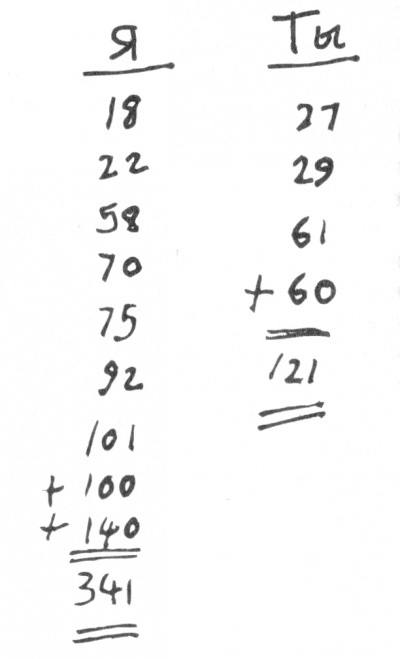 Я
18
22
58
70
75
92
101
+ 100
+ 140
341
Ты
27
29
61
+ 60
121